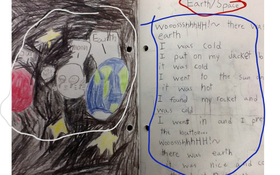 Earth
Earth/Space
Wooooshhhhh!~ there was
earth
I was cold
I put on my jacket b
I was cold
I went to the sun a
it was hot
I found my rocket and
was cold
I went in and I pre
the button
Woooshhhhhh!~
there was earth
was nice and co